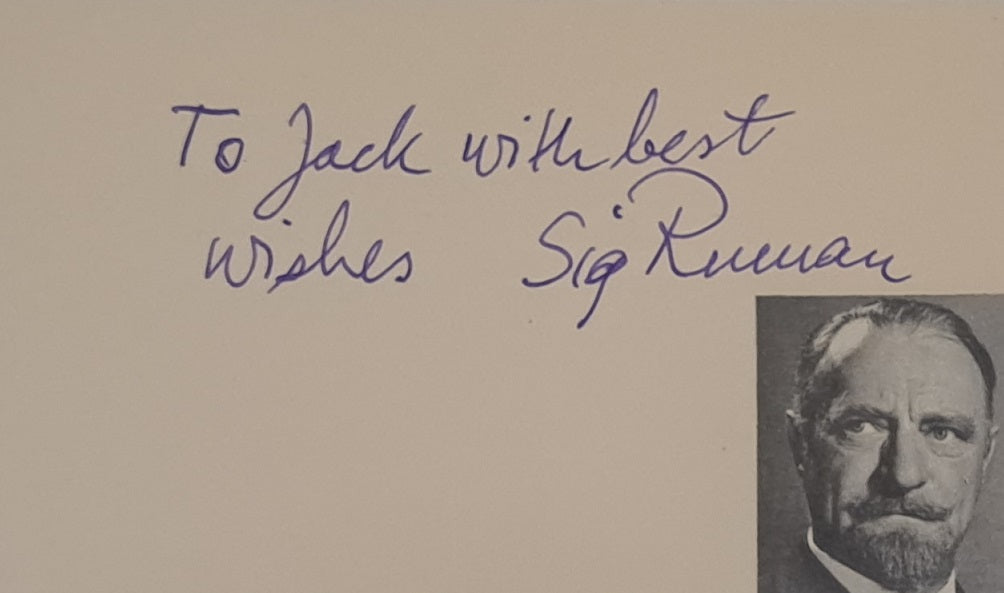 To Jack with best
wishes Sig Ruman